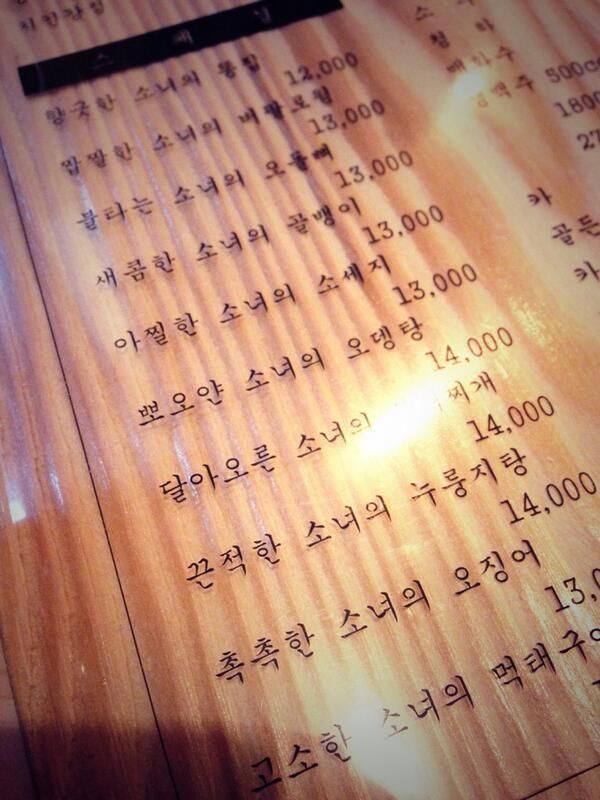 스페셜
향긋한 소녀의 똥집 12,000
짭짤한 소녀의 버팔로윙 13,000
불타는 소녀의 오돌뼈 13,000
새콤한 소녀의 골뱅이 13,000
아찔한 소녀의 소세지 13,000
뽀오얀 소녀의 오뎅탕 14,000
달아오른 소녀의 찌개 14,000
끈적한 소녀의 누룽지탕 14,000
촉촉한 소녀의 오징어 13,0
고소한 소녀의 먹태구이
소주
청하
매화수
생맥주 500cc
1800
27
카
골든
카